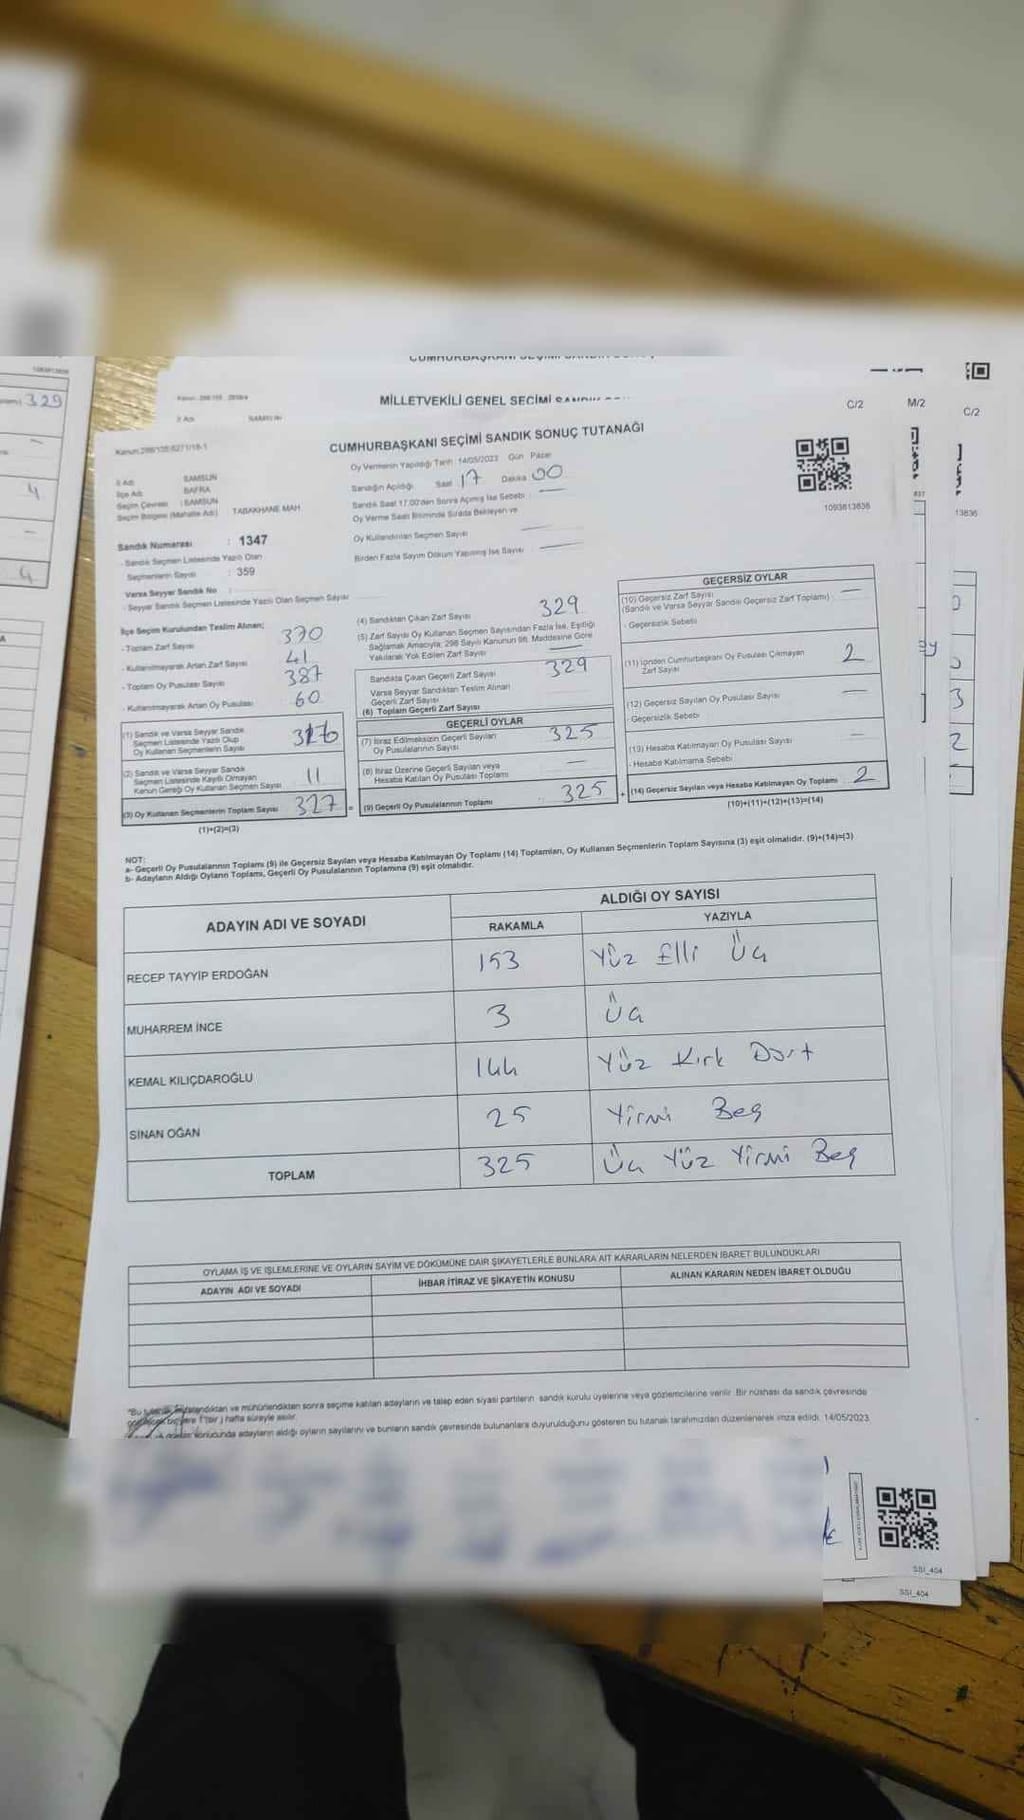 329
4
4
MİLLETVEKİLİ GENEL SEÇİMİ
C/2
M/2
C/2
CUMHURBAŞKANI SEÇİMİ SANDIK SONUÇ TUTANAĞI
Oy Vermenin Yapıldığı Tarih : 14/05/2023 Gün : Pazar
Sandığın Açıldığı Saat 17 Dakika 00
Sandık Saat 17.00'den Sonra Açılmış İse Sebebi :
Oy Verme Saati Bitiminde Sırada Bekleyen ve
Oy Kullandırılan Seçmen Sayısı
Birden Fazla Sayım Döküm Yapılmış İse Sayısı
1093813836
13836
İl Adı : SAMSUN
İlçe Adı : BAFRA
Seçim Çevresi : SAMSUN
Seçim Bölgesi (Mahalle Adı) : TABAKHANE MAH
Sandık Numarası : 1347
- Sandık Seçmen Listesinde Yazılı Olan
Seçmenlerin Sayısı : 359
Varsa Seyyar Sandık No :
- Seyyar Sandık Seçmen Listesinde Yazılı Olan Seçmen Sayısı
İlçe Seçim Kurulundan Teslim Alınan;
- Toplam Zarf Sayısı 370
- Kullanılmayarak Artan Zarf Sayısı 41
- Toplam Oy Pusulası Sayısı 387
- Kullanılmayarak Artan Oy Pusulası 60
(1) Sandık ve Varsa Seyyar Sandık
Seçmen Listesinde Yazılı Olup
Oy Kullanan Seçmenlerin Sayısı
(2) Sandık ve Varsa Seyyar Sandık
Seçmen Listesinde Kayıtlı Olmayan
Kanun Gereği Oy Kullanan Seçmen Sayısı
(3) Oy Kullanan Seçmenlerin Toplam Sayısı 327 =
(1)+(2)=(3)
(4) Sandıktan Çıkan Zarf Sayısı 329
(5) Zarf Sayısı Oy Kullanan Seçmen Sayısından Fazla İse, Eşitliği
Sağlamak Amacıyla; 298 Sayılı Kanunun 98. Maddesine Göre
Yakılarak Yok Edilen Zarf Sayısı
Sandıkta Çıkan Geçerli Zarf Sayısı 329
Varsa Seyyar Sandıktan Teslim Alınan
Geçerli Zarf Sayısı
(6) Toplam Geçerli Zarf Sayısı
GEÇERLİ OYLAR
(7) İtiraz Edilmeksizin Geçerli Sayılan
Oy Pusulalarının Sayısı 325
(8) İtiraz Üzerine Geçerli Sayılan veya
Hesaba Katılan Oy Pusulası Toplamı
(9) Geçerli Oy Pusulalarının Toplamı : 325 +
GEÇERSİZ OYLAR
(10) Geçersiz Zarf Sayısı
(Sandık ve Varsa Seyyar Sandık Geçersiz Zarf Toplamı)
- Geçersizlik Sebebi
(11) İçinden Cumhurbaşkanı Oy Pusulası Çıkmayan
Zarf Sayısı 2
(12) Geçersiz Sayılan Oy Pusulası Sayısı
- Geçersizlik Sebebi
(13) Hesaba Katılmayan Oy Pusulası Sayısı
- Hesaba Katılmama Sebebi
(14) Geçersiz Sayılan veya Hesaba Katılmayan Oy Toplamı 2
(10)+(11)+(12)+(13)=(14)
NOT:
a- Geçerli Oy Pusulalarının Toplamı (9) ile Geçersiz Sayılan veya Hesaba Katılmayan Oy Toplamı (14) Toplamları, Oy Kullanan Seçmenlerin Toplam Sayısına (3) eşit olmalıdır. (9)+(14)=(3)
b- Adayların Aldığı Oyların Toplamı, Geçerli Oy Pusulalarının Toplamına (9) eşit olmalıdır.
ADAYIN ADI VE SOYADI
ALDIĞI OY SAYISI
RAKAMLA
YAZIYLA
RECEP TAYYİP ERDOĞAN 153 Yüz Elli Üç
MUHARREM İNCE 3 Üç
KEMAL KILIÇDAROĞLU 144 Yüz Kırk Dört
SİNAN OĞAN 25 Yirmi Beş
TOPLAM 325 Üç Yüz Yirmi Beş
OYLAMA İŞ VE İŞLEMLERİNE VE OYLARIN SAYIM VE DÖKÜMÜNE DAİR ŞİKAYETLERLE BUNLARA AİT KARARLARIN NELERDEN İBARET BULUNDUKLARI
ADAYIN ADI VE SOYADI
İHBAR İTİRAZ VE ŞİKAYETİN KONUSU
ALINAN KARARIN NEDEN İBARET OLDUĞU
mühürlendikten sonra seçime katılan adayların ve talep eden siyasi partilerin sandık kurulu üyelerine veya gözlemcilerine verilir. Bir nüshası da sandık çevresinde
hafta süreyle asılır.
sonucunda adayların aldığı oyların sayılarını ve bunların sandık çevresinde bulunanlara duyurulduğunu gösteren bu tutanak tarafımızdan düzenlenerek imza edildi. 14/05/2023
SSI_404
SSI_404